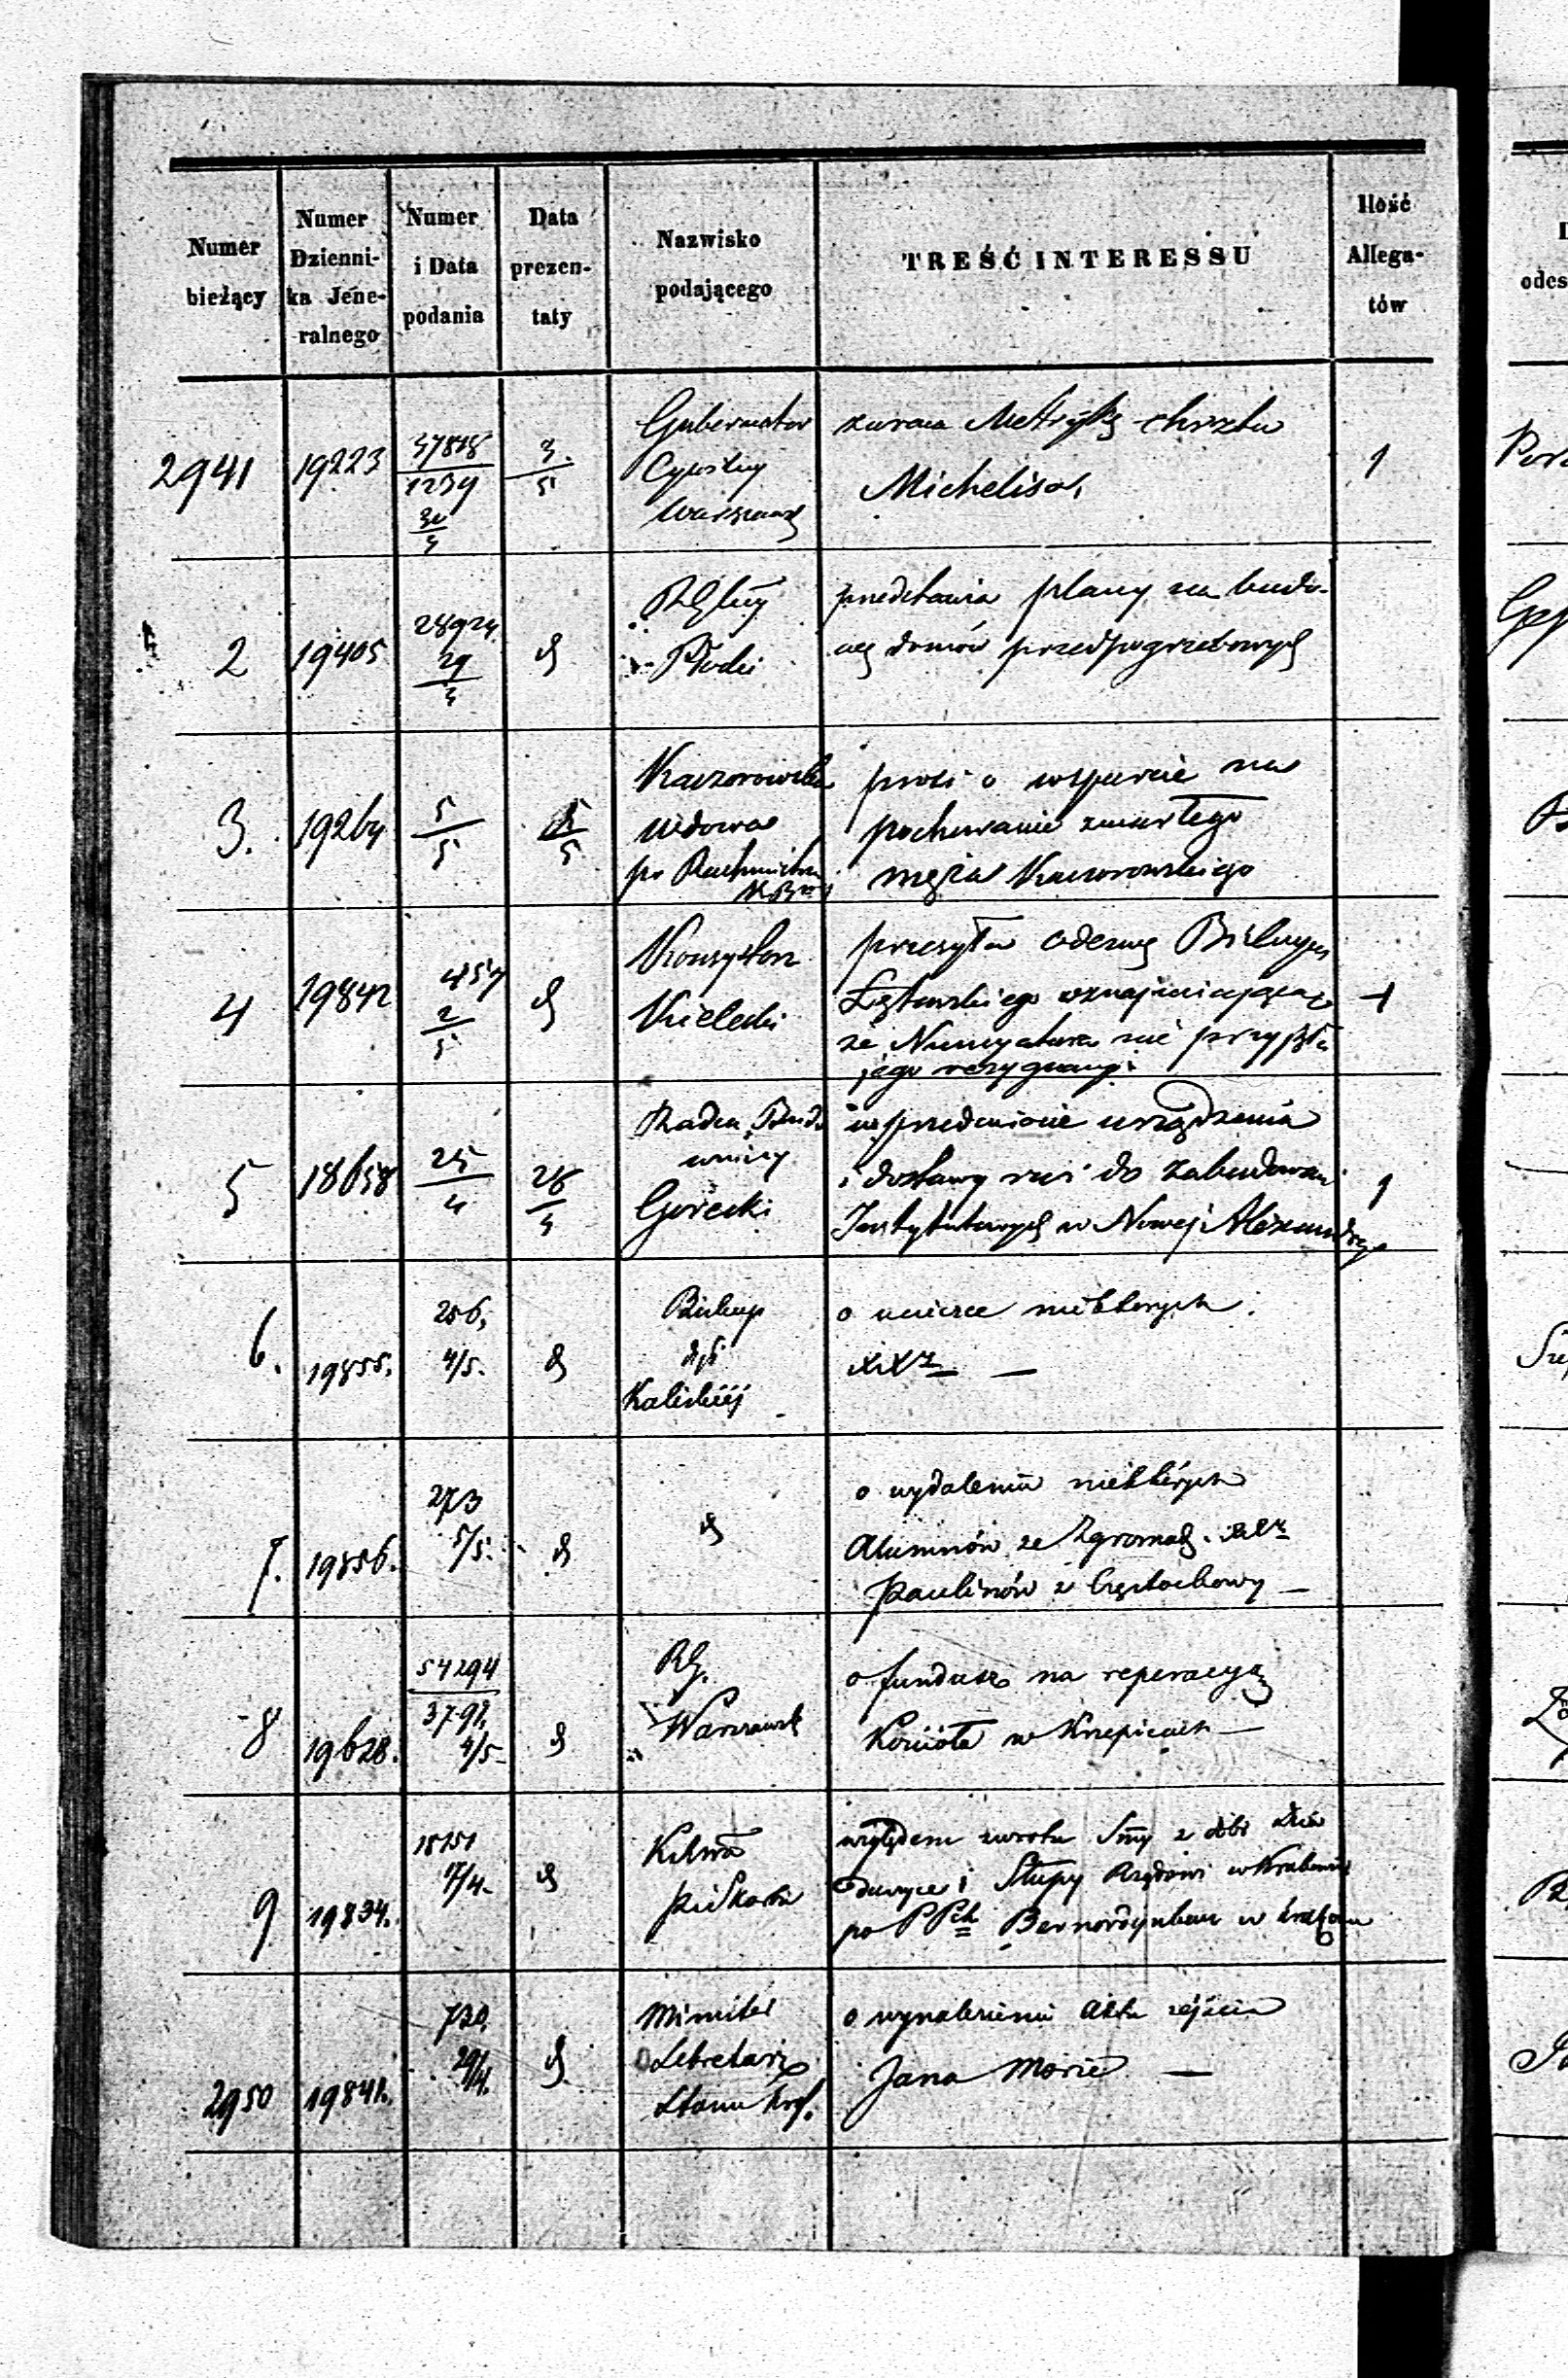 Numer bieżący
Numer Dzienni- ka Jene- ralnego
Numer i Data podania
Data prezen- taty
Nazwisko podającego
TREŚĆ INTERESSU
Ilość Allega- tów
odes
2941
19223
37878
1239
30
3.
5
Gubernator
Cywilny
Warszaws
zwraca Metrykę chrztu
Michelisa,
1
2
19405
28924
29
RG
Płocki
przedstawia plany na budo-
wę domów przedpogrzebowych
3.
19264
5
5
5
Kaczorowska
wdowa
po
prosi o wsparcie na
pochowanie zmarłego
męża Kaczorowskiego
4
19842
457
2
5
Konsystorz
Kielecki
przesyła odezwę Biskupa
Łętowskiego oznajmiającą
że Nuncyatura nie
jego rezygnacyi
1
5
18658
25
4
28
4
Radca Budo
wniczy
Gorecki
w przedmiocie urządzenia
i dostawy do zabudowań
Instytutowych w Nowej Alexandryi
1
6.
19855.
256,
4/5.
Biskup
Kaliskiej
o ucieczce niektórych
XXży —
7.
19856.
273
5/5.
o wydaleniu niektórych
Alumnów ze Zgromadz.
Paulinów z Częstochowy —
8
19628.
54294
3792,
4/5
RG.
Warszawsk
o fundusz na reperacyą
Kościoła w Krzepicach —
9
19834.
18151
17/4.
względem zwrotu Smy z dóbr
i Słupy Rządowi w
po PPch Bernardynkach w
2950
19841.
720.
29/4.
Minister
Sekretarz
Stanu Król.
o wynalezienie Aktu zejścia
Jana Morie —